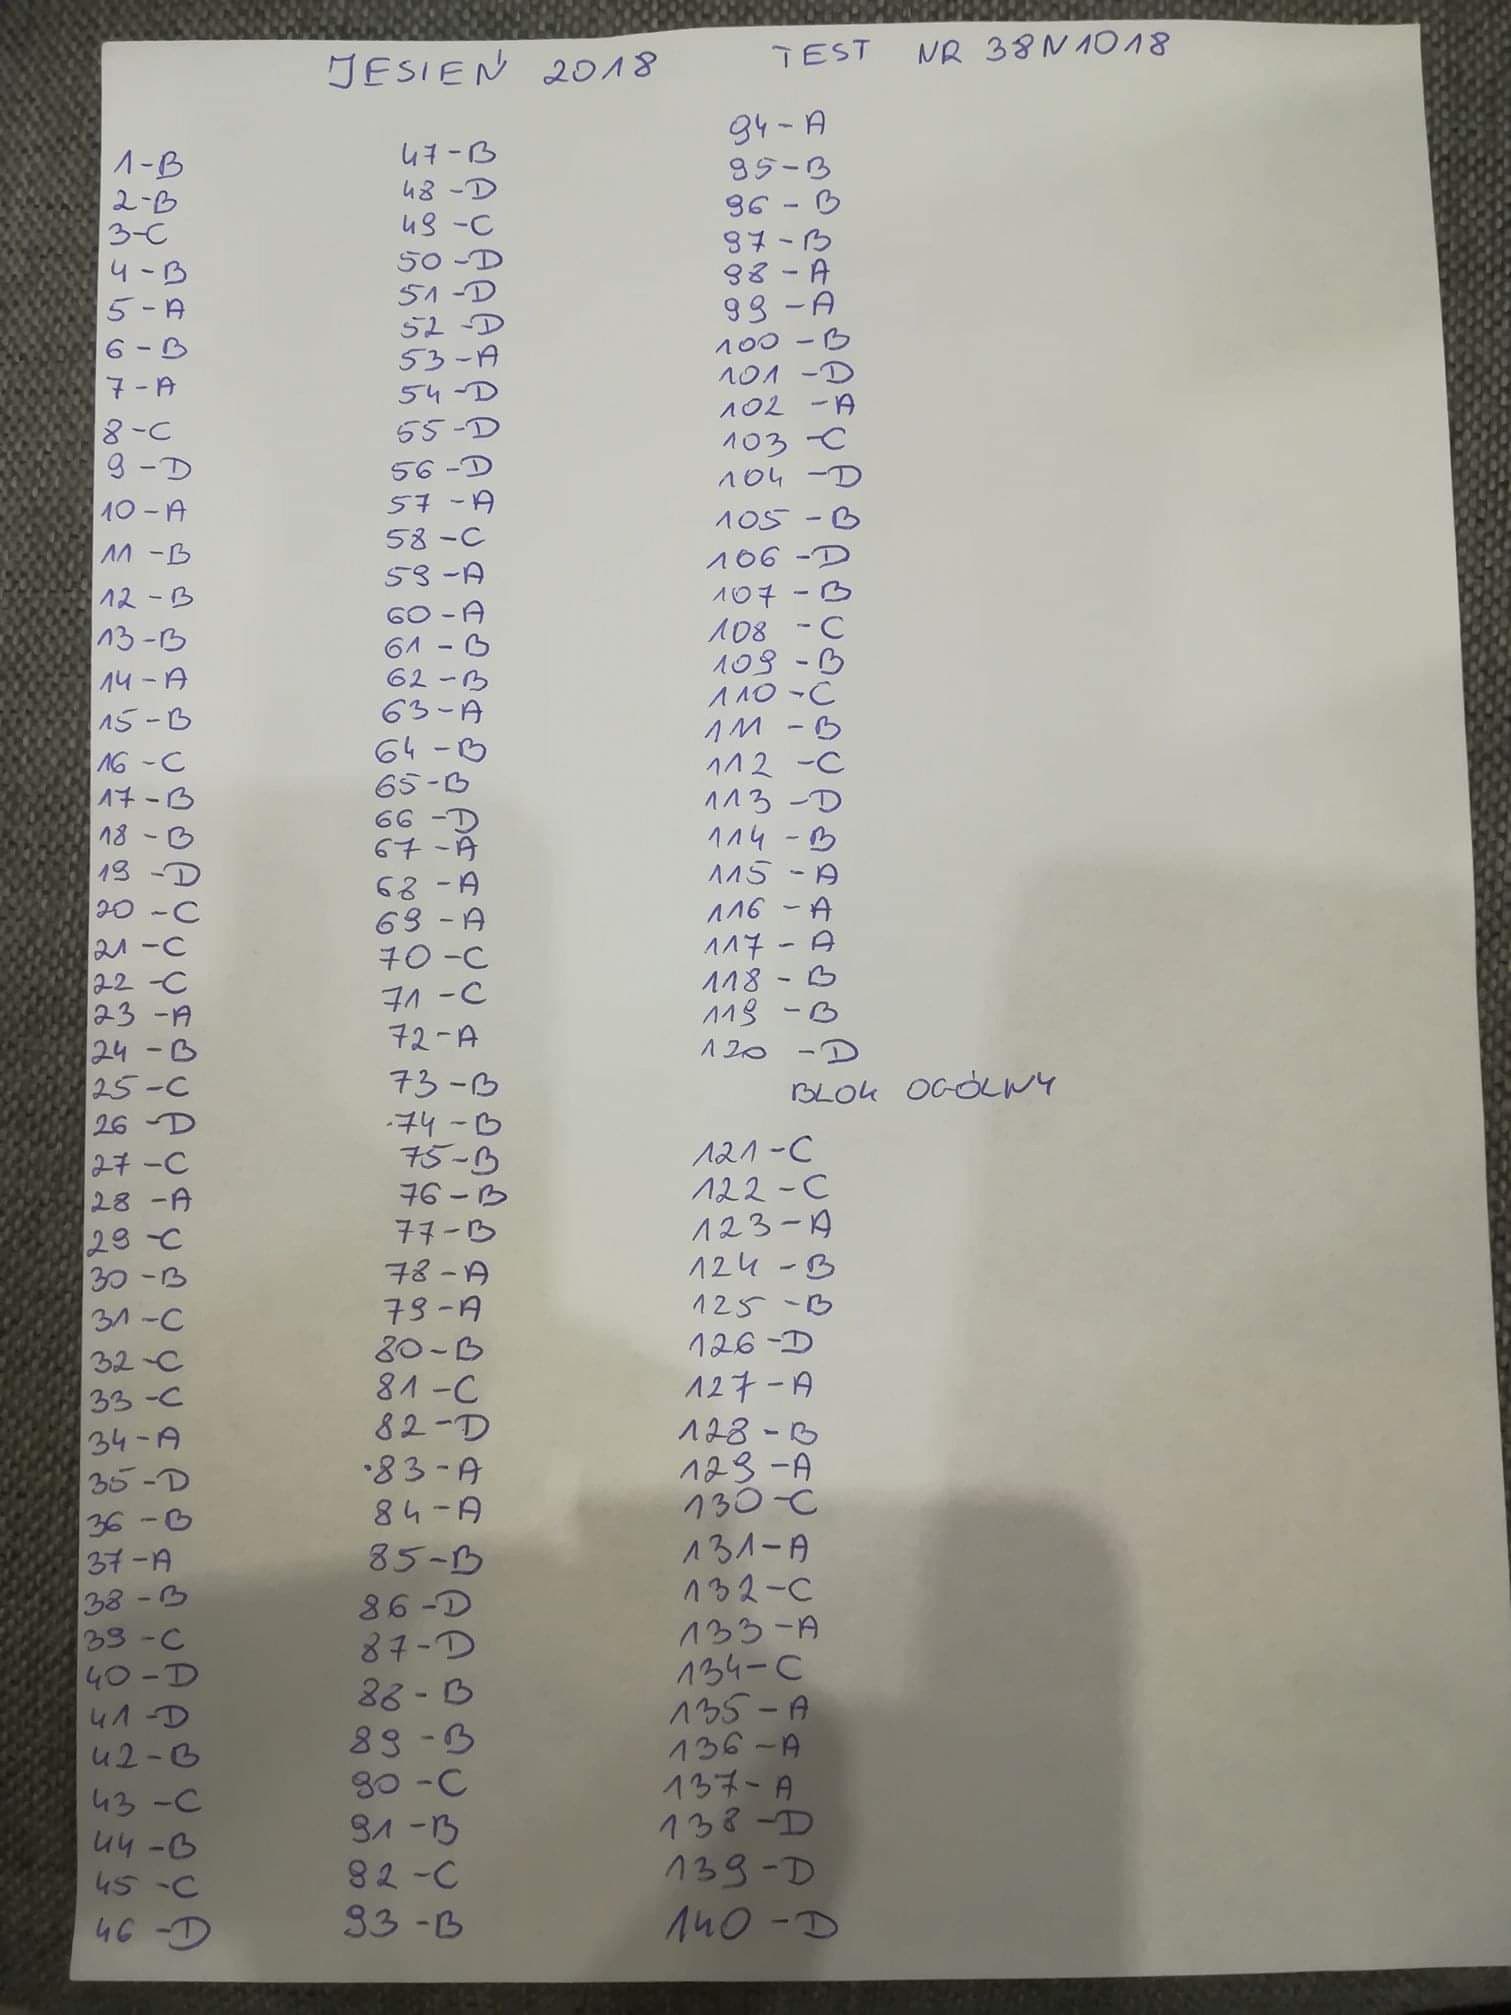 JESIEŃ 2018
TEST NR 38N1018
1-B
2-B
3-C
4-B
5-A
6-B
7-A
8-C
9-D
10-A
11-B
12-B
13-B
14-A
15-B
16-C
17-B
18-B
19-D
20-C
21-C
22-C
23-A
24-B
25-C
26-D
27-C
28-A
29-C
30-B
31-C
32-C
33-C
34-A
35-D
36-B
37-A
38-B
39-C
40-D
41-D
42-B
43-C
44-B
45-C
46-D
47-B
48-D
49-C
50-D
51-D
52-D
53-A
54-D
55-D
56-D
57-A
58-C
59-A
60-A
61-B
62-B
63-A
64-B
65-B
66-D
67-A
68-A
69-A
70-C
71-C
72-A
73-B
74-B
75-B
76-B
77-B
78-A
79-A
80-B
81-C
82-D
83-A
84-A
85-B
86-D
87-D
88-B
89-B
90-C
91-B
92-C
93-B
94-A
95-B
96-B
97-B
98-A
99-A
100-B
101-D
102-A
103-C
104-D
105-B
106-D
107-B
108-C
109-B
110-C
111-B
112-C
113-D
114-B
115-A
116-A
117-A
118-B
119-B
120-D
BLOK OGÓLNY
121-C
122-C
123-A
124-B
125-B
126-D
127-A
128-B
129-A
130-C
131-A
132-C
133-A
134-C
135-A
136-A
137-A
138-D
139-D
140-D